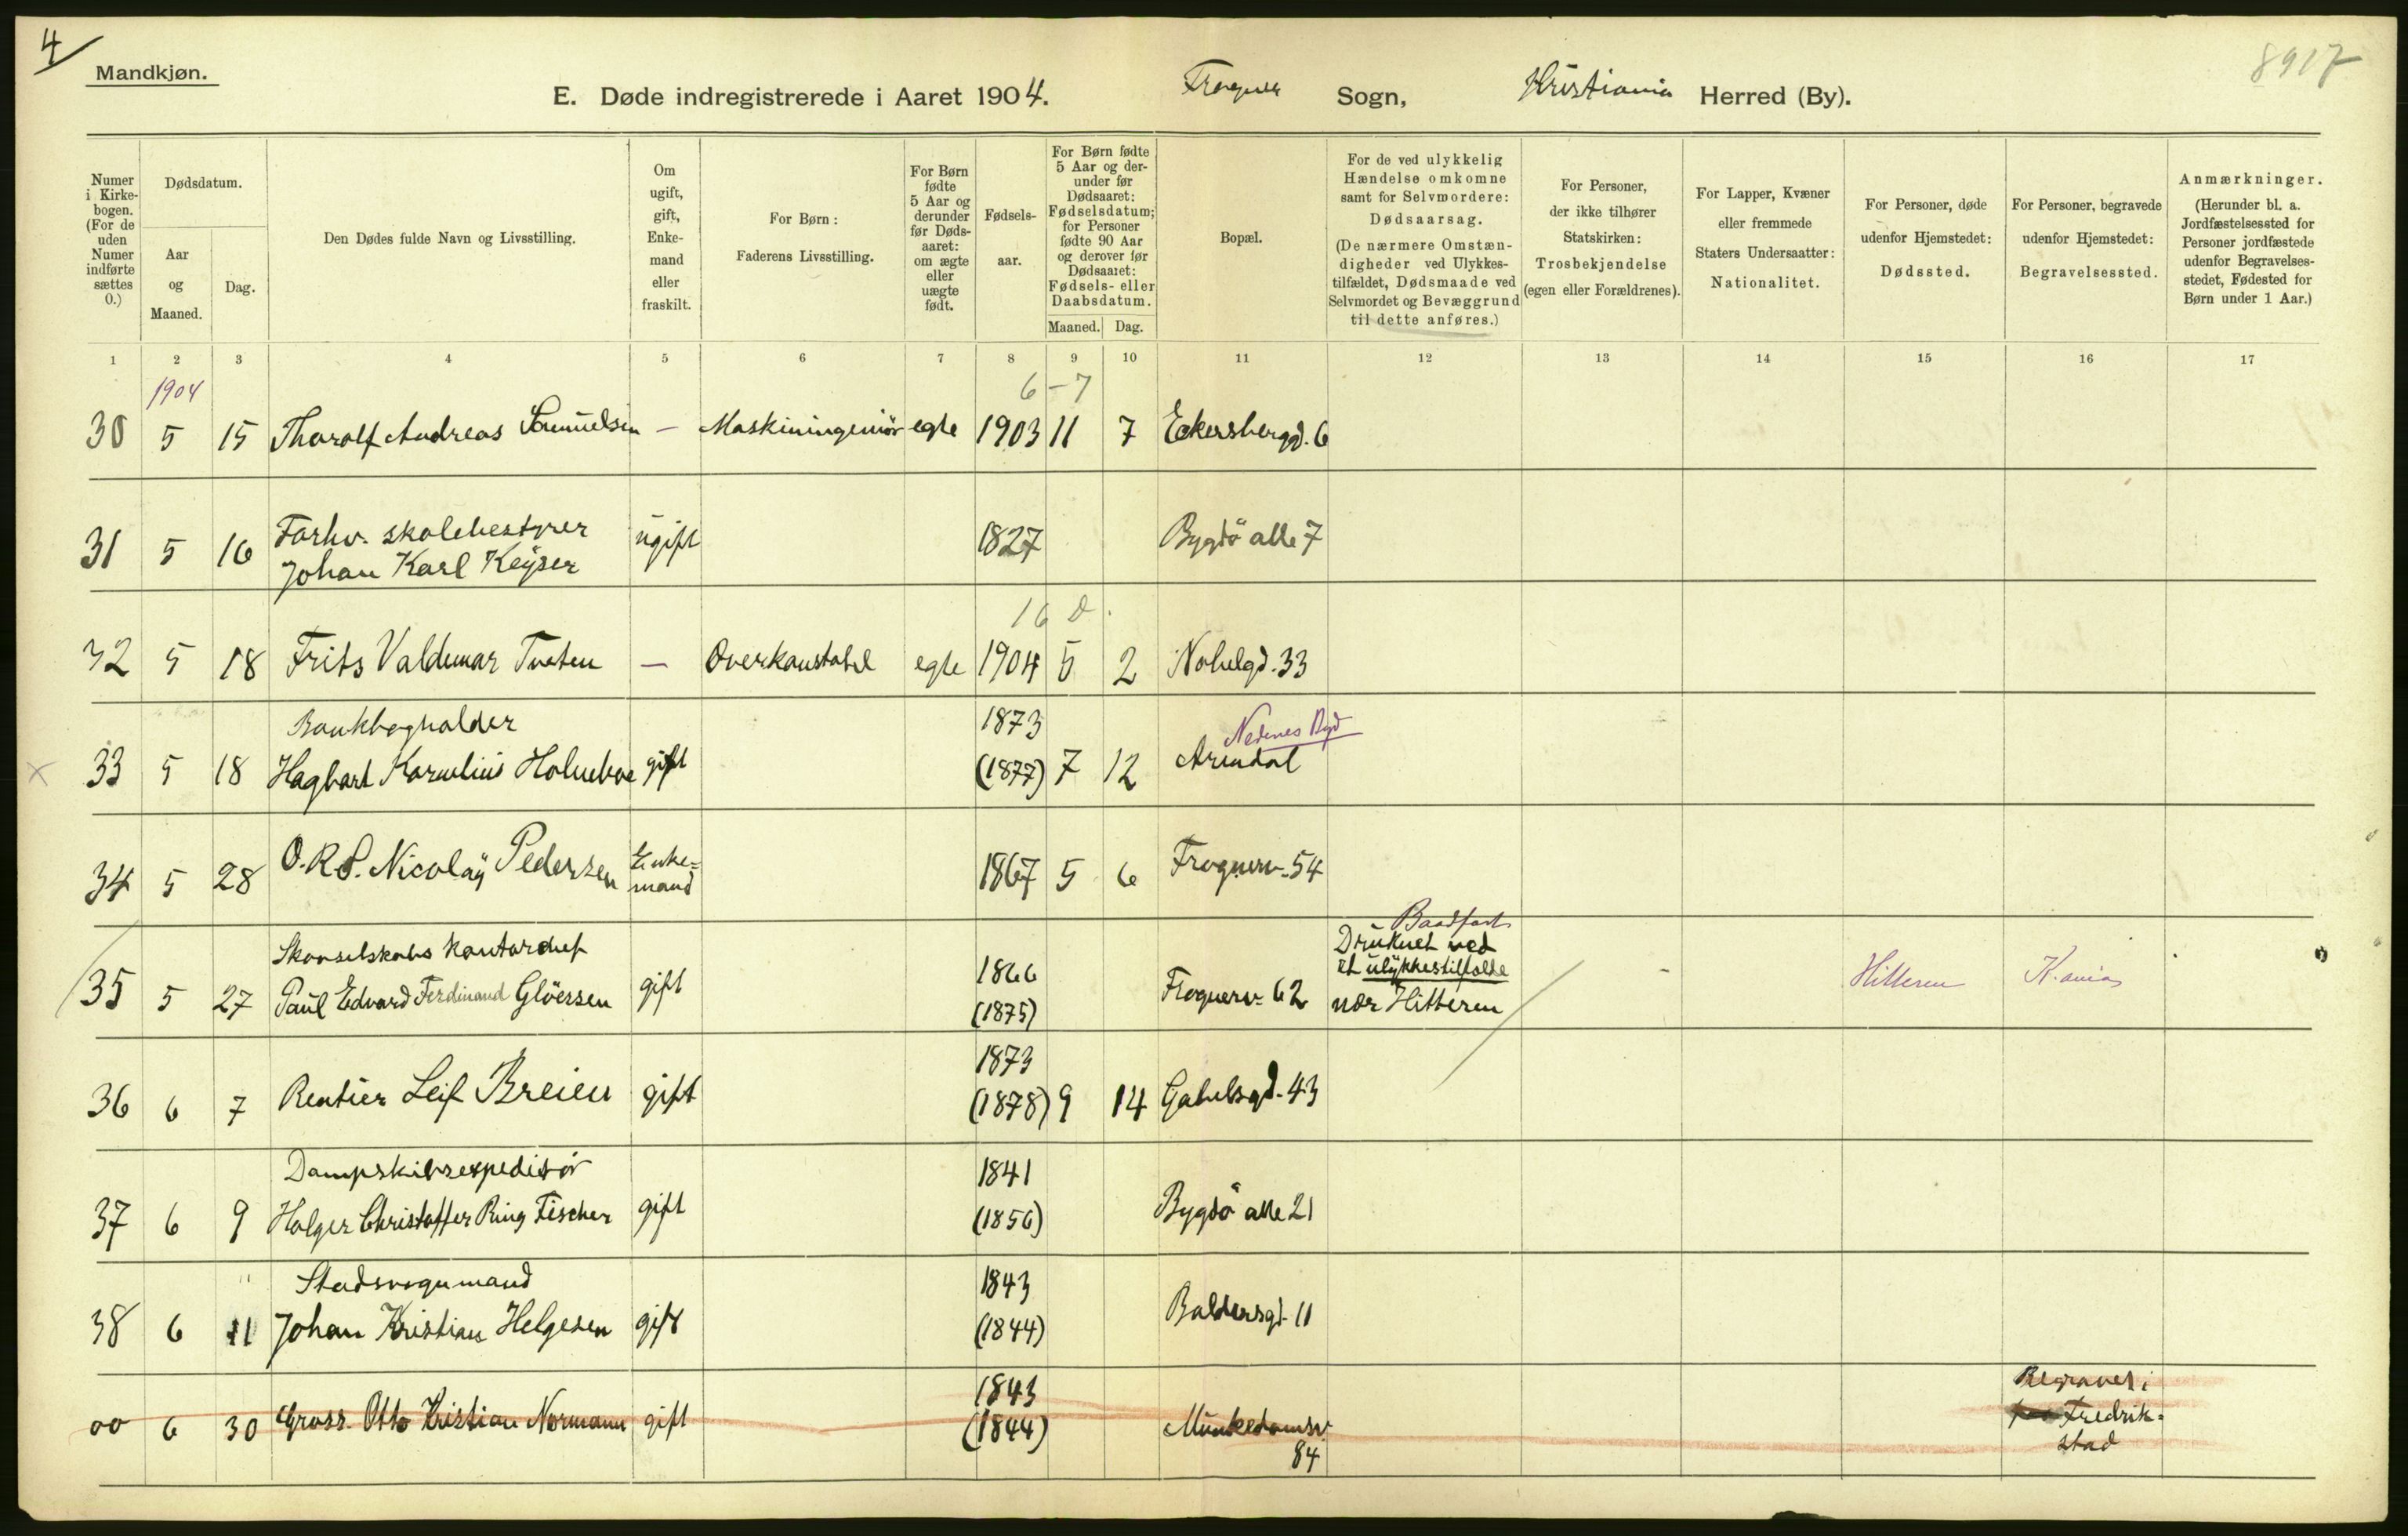 4
Mandkjøn.
8917
E. Døde indregistrerede i Aaret 1904. Frogner Sogn, Kristiania Herred (By).
Numer i Kirkebogen. (For de uden Numer indførte sættes 0.)
Dødsdatum.
Aar og Maaned.
Dag.
Den Dødes fulde Navn og Livsstilling.
Om ugift, gift, Enkemand eller fraskilt.
For Børn: Faderens Livsstilling.
For Børn fødte 5 Aar og derunder før Dødsaaret: om ægte eller uægte født.
Fødselsaar.
For Børn fødte 5 Aar og derunder før Dødsaaret: Fødselsdatum; for Personer fødte 90 Aar og derover før Dødsaaret: Fødsels- eller Daabsdatum.
Maaned. Dag.
Bopæl.
For de ved ulykkelig Hændelse omkomne samt for Selvmordere: Dødsaarsag. (De nærmere Omstændigheder ved Ulykkestilfældet, Dødsmaade ved Selvmordet og Bevæggrund til dette anføres.)
For Personer, der ikke tilhører Statskirken: Trosbekjendelse (egen eller Forældrenes).
For Lapper, Kvæner eller fremmede Staters Undersaatter: Nationalitet.
For Personer, døde udenfor Hjemstedet: Dødssted.
For Personer, begravede udenfor Hjemstedet: Begravelsessted.
Anmærkninger. (Herunder bl. a. Jordfæstelsessted for Personer jordfæstede udenfor Begravelsesstedet, Fødested for Børn under 1 Aar.)
1 2 3 4 5 6 7 8 9 10 11 12 13 14 15 16 17
1904 6-7
30 5 15 Tharalf Andreas Samuelsen — Maskiningeniør egte 1903 11 7 Eckersbergd. 6
31 5 16 Forhv. skolebestyrer
Johan Karl Keÿser ugift 1827 Bygdö alle 7
16 d.
32 5 18 Frits Valdemar Tveten — Overkonstabel egte 1904 5 2 Nobelgd. 33
Bankbogholder 1873 Nedenes Byd
x 33 5 18 Hagbart Kornelius Holmeboe gift (1877) 7 12 Arendal
34 5 28 O. R. S. Nicolaÿ Pedersen Enke=
mand 1867 5 6 Frognerv. 54
Baadfart
Skovselskabs kontorchef 1866 Druknet ved
et ulykkestilfælde
35 5 27 Paul Edvard Ferdinand Glöersen gift (1875) Frognerv. 62 nær Hitteren - Hitteren K.ania
1873
36 6 7 Rentier Leif Breien gift (1878) 9 14 Gabelsgd. 43
Dampskibsexpeditør 1841
37 6 9 Holger Christoffer Ring Fischer gift (1856) Bygdö alle 21
Stadsvognmand 1843
38 6 11 Johan Kristian Helgesen gift (1844) Baldersgd. 11
1843 Begravet i
00 6 30 Gross. Otto Kristian Normann gift (1844) Munkedamsv. 84 Fredrik=
stad